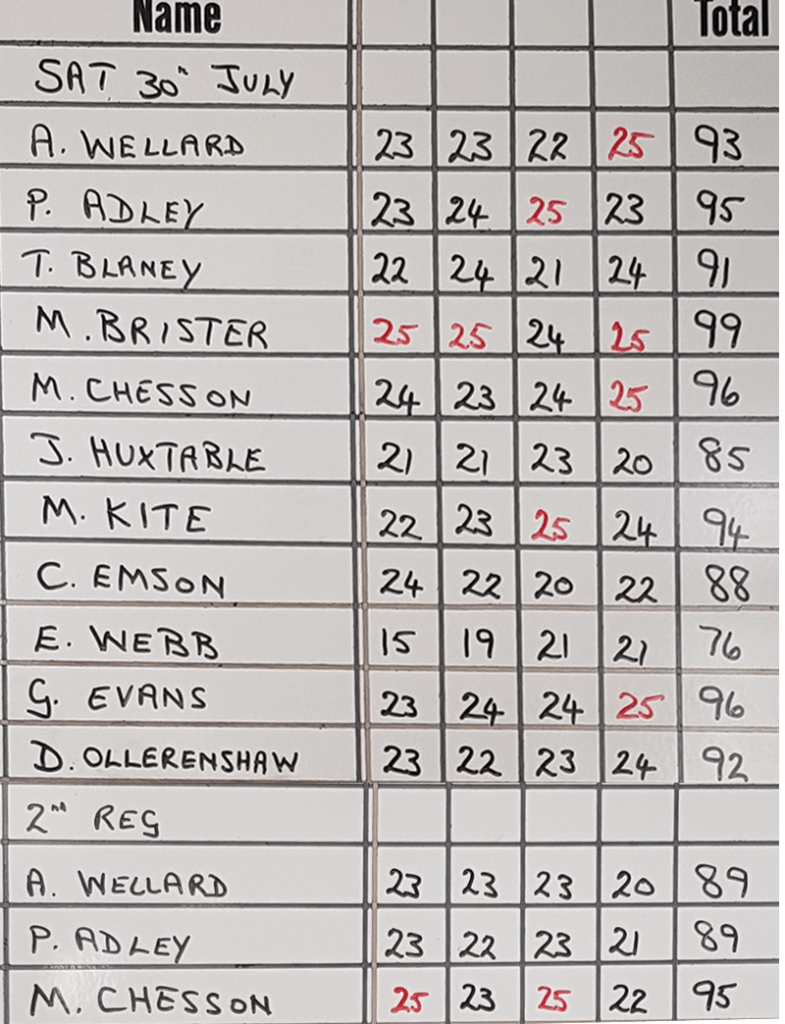 Name Total
SAT 30" JULY
A. WELLARD 23 23 22 25 93
P. ADLEY 23 24 25 23 95
T. BLANEY 22 24 21 24 91
M. BRISTER 25 25 24 25 99
M. CHESSON 24 23 24 25 96
J. HUXTABLE 21 21 23 20 85
M. KITE 22 23 25 24 94
C. EMSON 24 22 20 22 88
E. WEBB 15 19 21 21 76
G. EVANS 23 24 24 25 96
D. OLLERENSHAW 23 22 23 24 92
2nd REG
A. WELLARD 23 23 23 20 89
P. ADLEY 23 22 23 21 89
M. CHESSON 25 23 25 22 95